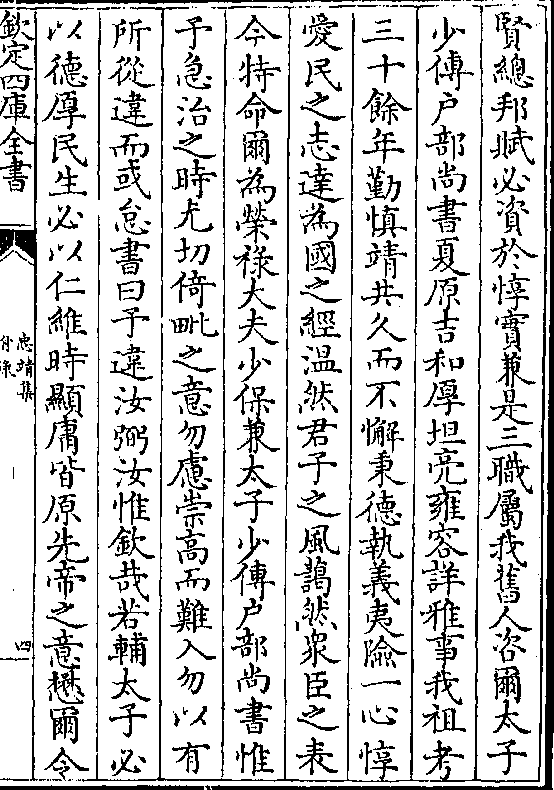 賢總邦賦必資於惇實兼是三職屬我舊人咨爾太子
少傅户部尚書夏原吉和厚坦亮雍容詳雅事我祖考
三十餘年勤慎靖共久而不懈秉德執義夷險一心惇
愛民之志達為國之經温然君子之風藹然衆臣之表
今特命爾為榮禄大夫少保兼太子少傅户部尚書惟
予急治之時尤切倚毗之意勿慮崇高而難入勿以有
所從違而或怠書曰予違汝弼汝惟欽哉若輔太子必
以德厚民生必以仁維時顯庸皆原先帝之意懋爾令
欽定四庫全書
忠靖集
附錄
四